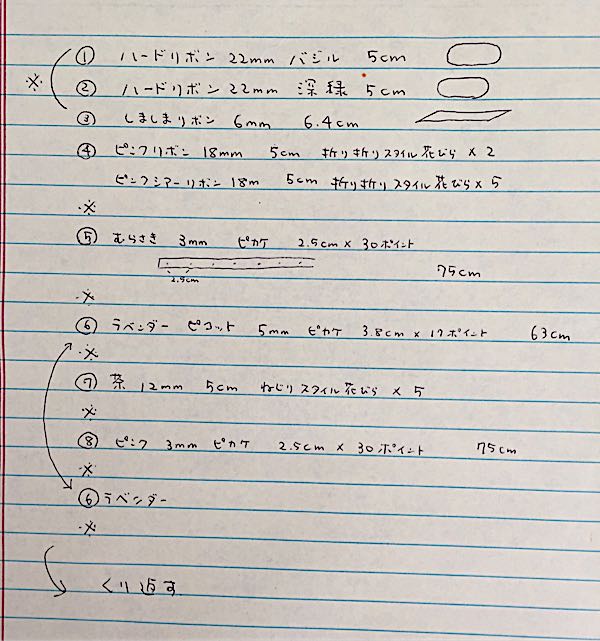 ① ハードリボン 22mm バジル 5cm
※
② ハードリボン 22mm 深緑 5cm
③ しましまリボン 6mm 6.4cm
④ ピンクリボン 18mm 5cm 折り折りスタイル花びら×2
ピンクシアーリボン 18m 5cm 折り折りスタイル花びら×5
※
⑤ むらさき 3mm ピカケ 2.5cm×30ポイント
2.5cm 75cm
※
⑥ ラベンダー ピコット 5mm ピカケ 3.8cm×17ポイント 63cm
※
⑦ 茶 12mm 5cm ねじりスタイル花びら×5
※
⑧ ピンク 3mm ピカケ 2.5cm×30ポイント 75cm
※
⑥ ラベンダー
※
くり返す